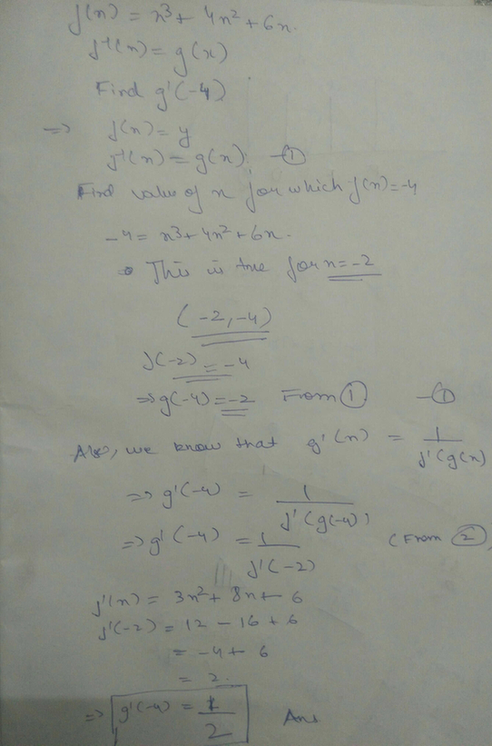 f(x) = x³ + 4x² + 6x.
f⁻¹(x) = g(x)
Find g'(-4)
=> f(x) = y
f⁻¹(x) = g(x). —①
Find value of x for which f(x) = -4
-4 = x³ + 4x² + 6x.
This is true for x = -2
(-2, -4)
f(-2) = -4
=> g(-4) = -2 From ① —②
Also, we know that g'(x) = 1 / f'(g(x)
=> g'(-4) = 1 / f'(g(-4))
=> g'(-4) = 1 / f'(-2) (From ②)
f'(x) = 3x² + 8x + 6
f'(-2) = 12 - 16 + 6
= -4 + 6
= 2.
=> g'(-4) = 1 / 2 Ans